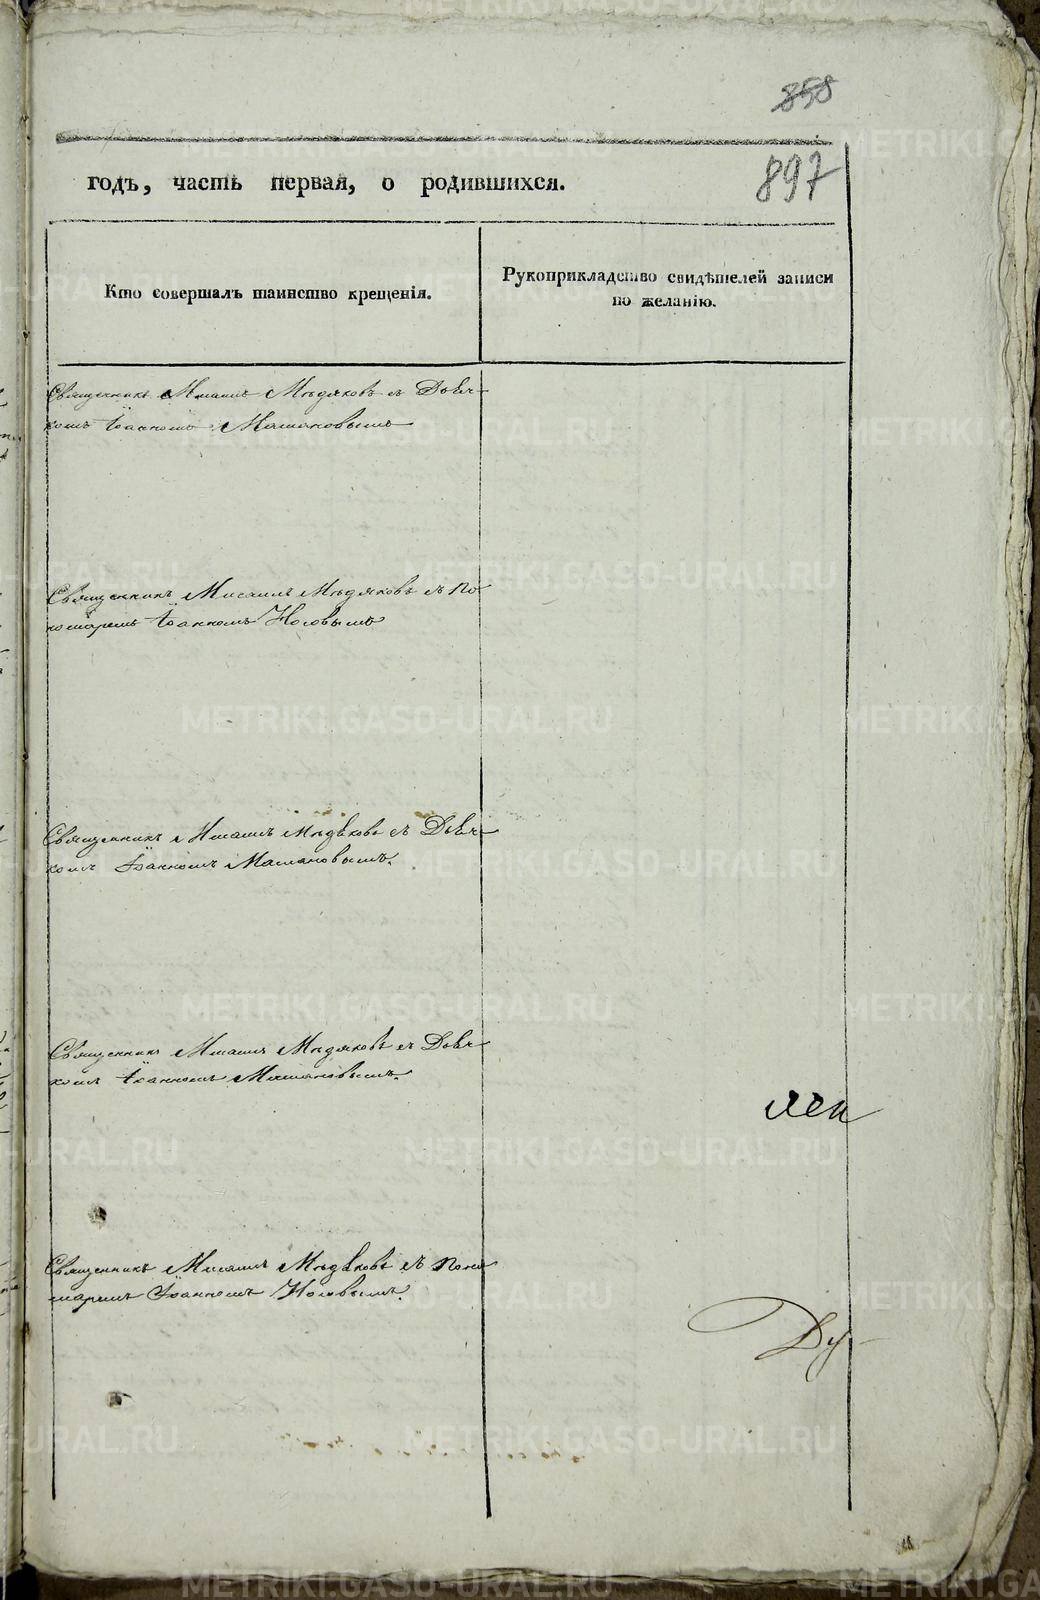 858
897
годъ, часть первая, о родившихся.
Кто совершалъ таинство крещенія.
Рукоприкладство свидѣтелей записи
по желанію.
Священникъ Мисаилъ Мѣдяковъ съ Дьяч-
комъ Іоанномъ
Священникъ Мисаилъ Мѣдяковъ съ По-
номаремъ Іоанномъ Носовымъ
Священникъ Мисаилъ Мѣдяковъ съ Дьяч-
комъ Іоанномъ
Священникъ Мисаилъ Мѣдяковъ съ Дьяч-
комъ Іоанномъ
Священникъ Мисаилъ Мѣдяковъ съ Поно-
маремъ Іоанномъ Носовымъ.
Ду-
METRIKI.GASO-URAL.RU